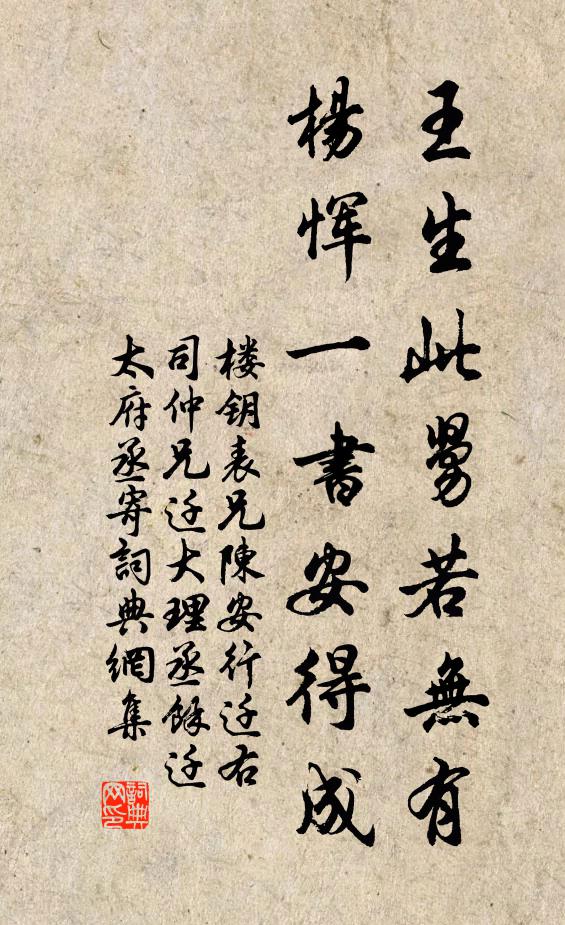 王生此舅若無有
楊恽一書安得成
楼钥表兄陳安行迁右
司仲兄迁大理丞餘迁
太府丞寄詞典網集
詞典网印